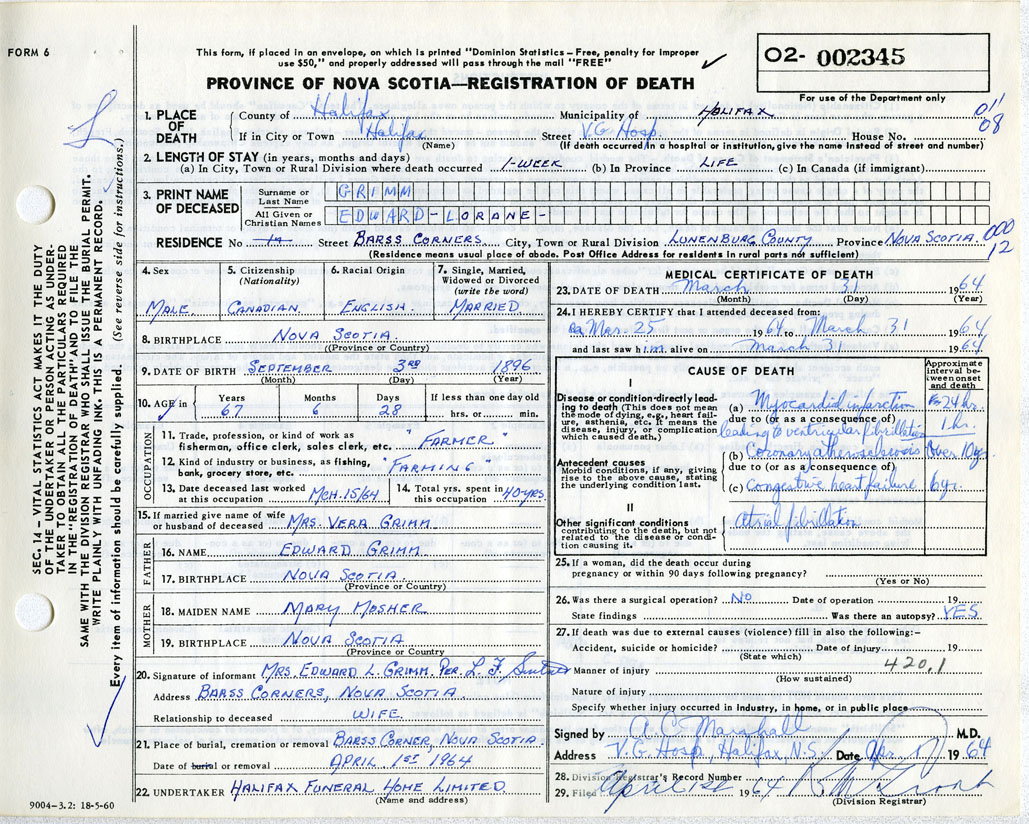 FORM 6
This form, if placed in an envelope, on which is printed "Dominion Statistics – Free, penalty for improper
use $50," and properly addressed will pass through the mail "FREE"
02- 002345
For use of the Department only
PROVINCE OF NOVA SCOTIA—REGISTRATION OF DEATH
011
08
1. PLACE OF DEATH
County of Halifax Municipality of HALIFAX
If in City or Town Halifax Street V.G. Hosp. House No.
(Name) (If death occurred in a hospital or institution, give the name instead of street and number)
2. LENGTH OF STAY (in years, months and days)
(a) In City, Town or Rural Division where death occurred 1-WEEK (b) In Province LIFE (c) In Canada (if immigrant)
3. PRINT NAME OF DECEASED
Surname or Last Name GRIMM
All Given or Christian Names EDWARD-LORANE-
RESIDENCE No 14 Street BARSS CORNERS City, Town or Rural Division LUNENBURG COUNTY Province NOVA SCOTIA. 000
12
(Residence means usual place of abode. Post Office Address for residents in rural parts not sufficient)
4. Sex MALE
5. Citizenship (Nationality) CANADIAN.
6. Racial Origin ENGLISH.
7. Single, Married, Widowed or Divorced (write the word) MARRIED
8. BIRTHPLACE NOVA SCOTIA
(Province or Country)
9. DATE OF BIRTH SEPTEMBER 3RD 1896
(Month) (Day) (Year)
10. AGE in Years 67 Months 6 Days 28 If less than one day old hrs. or min.
OCCUPATION
11. Trade, profession, or kind of work as fisherman, office clerk, sales clerk, etc. "FARMER"
12. Kind of industry or business, as fishing, bank, grocery store, etc. "FARMING"
13. Date deceased last worked at this occupation MCH. 15/64
14. Total yrs. spent in this occupation 40-yrs
15. If married give name of wife or husband of deceased MRS. VERA GRIMM.
FATHER
16. NAME EDWARD GRIMM
17. BIRTHPLACE NOVA SCOTIA.
(Province or Country)
MOTHER
18. MAIDEN NAME MARY MOSHER
19. BIRTHPLACE NOVA SCOTIA
(Province or Country)
20. Signature of informant MRS. EDWARD L. GRIMM. PER. L. F.
Address BARSS CORNERS, NOVA SCOTIA
Relationship to deceased WIFE.
21. Place of burial, cremation or removal BARSS CORNER, NOVA SCOTIA.
Date of burial or removal APRIL 1ST 1964
22. UNDERTAKER HALIFAX FUNERAL HOME LIMITED.
(Name and address)
MEDICAL CERTIFICATE OF DEATH
23. DATE OF DEATH March 31 1964
(Month) (Day) (Year)
24. I HEREBY CERTIFY that I attended deceased from:
Mar. 25 1964 to March 31 1964
and last saw him alive on March 31 1964
CAUSE OF DEATH
Approximate interval between onset and death
I
Disease or condition directly leading to death (This does not mean the mode of dying, e.g., heart failure, asthenia, etc. It means the disease, injury, or complication which caused death.)
(a) Myocardial infarction 24 hr.
due to (or as a consequence of)
leading to ventricular fibrillation 1 hr.
Antecedent causes
Morbid conditions, if any, giving rise to the above cause, stating the underlying condition last.
(b) Coronary atherosclerosis Over 10 yr.
due to (or as a consequence of)
(c) Congestive heart failure 6 yr.
II
Other significant conditions
contributing to the death, but not related to the disease or condition causing it.
Atrial fibrillation
25. If a woman, did the death occur during
pregnancy or within 90 days following pregnancy?
(Yes or No)
26. Was there a surgical operation? No Date of operation 19
State findings Was there an autopsy? YES
27. If death was due to external causes (violence) fill in also the following:–
Accident, suicide or homicide? Date of injury 19
(State which)
Manner of injury 420.1
(How sustained)
Nature of injury
Specify whether injury occurred in industry, in home, or in public place
Signed by A. C. Marshall M.D.
Address V.G. Hosp, Halifax, N.S. Date Apr. 1 1964
28. Division Registrar's Record Number
29. Filed April 1st 1964
(Division Registrar)
SEC. 14 – VITAL STATISTICS ACT MAKES IT THE DUTY
OF THE UNDERTAKER OR PERSON ACTING AS UNDER-
TAKER TO OBTAIN ALL THE PARTICULARS REQUIRED
IN THE "REGISTRATION OF DEATH" AND TO FILE THE
SAME WITH THE DIVISION REGISTRAR WHO SHALL ISSUE THE BURIAL PERMIT.
WRITE PLAINLY WITH UNFADING INK. THIS IS A PERMANENT RECORD.
Every item of information should be carefully supplied. (See reverse side for instructions.)
9004–3.2: 18-5-60